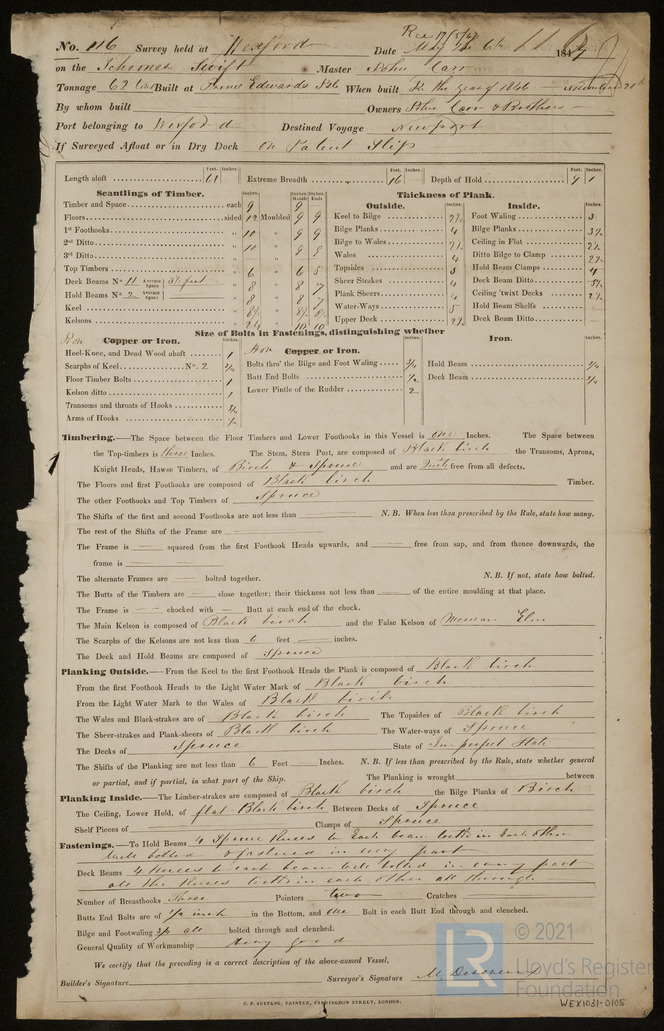 Rec 17/5/47
No. 116 Survey held at Wexford Date May 6th 1847
on the Schooner Swift Master John Carr
Tonnage 62 Tons Built at Prince Edwards Isd When built In the year of 1846 - November
By whom built Owners John Carr & Brothers
Port belonging to Wexford Destined Voyage Newport
If Surveyed Afloat or in Dry Dock On Patent Slip
Feet. Inches. Feet. Inches. Feet. Inches.
Length aloft 61 Extreme Breadth 16 Depth of Hold 9 1
Scantlings of Timber. Thickness of Plank.
Inches. Inches Middle Inches Ends Outside. Inches. Inside. Inches.
Timber and Space each 9 Keel to Bilge 2½ Foot Waling 3
Floors sided 12 Moulded 9 9 Bilge Planks 4 Bilge Planks 3½
1st Foothooks " 10 " 9 9 Bilge to Wales 2½ Ceiling in Flat 2½
2nd Ditto " 10 " 9 8 Wales 4 Ditto Bilge to Clamp 2½
3rd Ditto " " Topsides 3 Hold Beam Clamps 4
Top Timbers " 6 " 6 5 Sheer Strakes 4 Deck Beam Ditto 3½
Deck Beams No. 11 Average Space 3½ feet " 8 " 8 7 Plank Sheers 4 Ceiling 'twixt Decks 2½
Hold Beams No. 2 Average Space " 8 " 8 7 Water-Ways 5 Hold Beam Shelfs
Keel " 8½ " 8½ 8½ Upper Deck 2½ Deck Beam Ditto
Kelsons " " 10 10
Size of Bolts in Fastenings, distinguishing whether
Iron Copper or Iron. Iron Copper or Iron. Inches. Iron. Inches.
Heel-Knee, and Dead Wood abaft 1 Bolts thro' the Bilge and Foot Waling ¾ Hold Beam ¾
Scarphs of Keel No. 2 ¾ Butt End Bolts ½ Deck Beam ¾
Floor Timber Bolts 1 Lower Pintle of the Rudder 2
Kelson ditto 1
Transoms and throats of Hooks ¾
Arms of Hooks ½
Timbering.—The Space between the Floor Timbers and Lower Foothooks in this Vessel is one Inches. The Space between
the Top-timbers is three Inches. The Stem, Stern Post, are composed of Black birch the Transoms, Aprons,
Knight Heads, Hawse Timbers, of Birch & Spruce and are Quite free from all defects.
The Floors and first Foothooks are composed of Black birch Timber.
The other Foothooks and Top Timbers of Spruce
The Shifts of the first and second Foothooks are not less than N. B. When less than prescribed by the Rule, state how many.
The rest of the Shifts of the Frame are
The Frame is squared from the first Foothook Heads upwards, and free from sap, and from thence downwards, the
frame is
The alternate Frames are bolted together. N. B. If not, state how bolted.
The Butts of the Timbers are close together; their thickness not less than of the entire moulding at that place.
The Frame is chocked with Butt at each end of the chock.
The Main Kelson is composed of Black birch and the False Kelson of Elm
The Scarphs of the Kelsons are not less than 6 feet inches.
The Deck and Hold Beams are composed of Spruce
Planking Outside.—From the Keel to the first Foothook Heads the Plank is composed of Black birch
From the first Foothook Heads to the Light Water Mark of Black birch
From the Light Water Mark to the Wales of Black birch
The Wales and Black-strakes are of Black birch The Topsides of Black birch
The Sheer-strakes and Plank-sheers of Black birch The Water-ways of Spruce
The Decks of Spruce State of In perfect State
The Shifts of the Planking are not less than 6 Feet Inches. N. B. If less than prescribed by the Rule, state whether general
or partial, and if partial, in what part of the Ship. The Planking is wrought between
Planking Inside.—The Limber-strakes are composed of Black birch the Bilge Planks of Birch
The Ceiling, Lower Hold, of flat Black birch Between Decks of Spruce
Shelf Pieces of Clamps of Spruce
Fastenings.—To Hold Beams 4 Spruce Knees to Each beam butts in Each other
bolted & fastened in every part
Deck Beams 4 Knees to each beam bolted in every part
all the Knees butts in each other all through
Number of Breasthooks Three Pointers two Crutches
Butts End Bolts are of ½ inch in the Bottom, and one Bolt in each Butt End through and clenched.
Bilge and Footwaling ¾ all bolted through and clenched.
General Quality of Workmanship Very good
We certify that the preceding is a correct description of the above-named Vessel,
Builder's Signature Surveyor's Signature
C. F. SEYFANG, PRINTER, FARRINGDON STREET, LONDON.
LR © 2021
Lloyd's Register
Foundation
WEX1031-0105